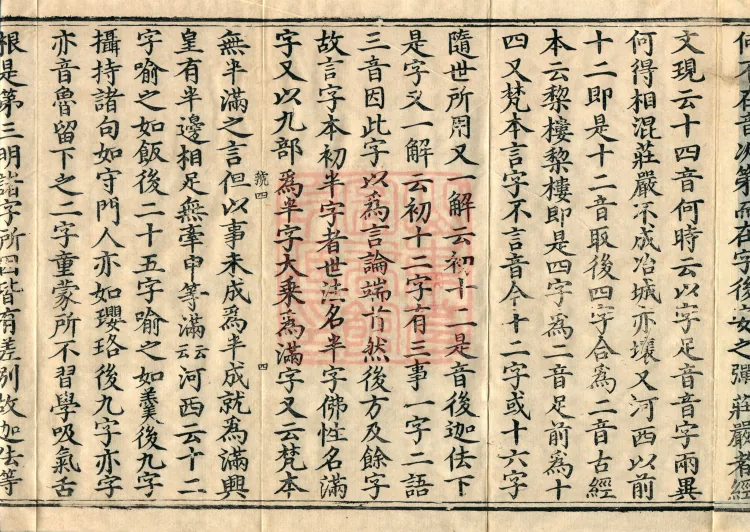 何不在音次第而在字後安之彈莊嚴者經
文現云十四音何時云以字足音音字兩異
何得相混莊嚴不成冶城亦壞又河西以前
十二即是十二音取後四字合為二音古經
本云黎樓黎樓即是四字為二音足前為十
四又梵本言字不言音今十二字或十六字
隨世所用又一解云初十二是音後迦佉下
是字又一解云初十二字有三事一字二語
三音因此字以為言論端首然後方及餘字
故言字本初半字者世法名半字佛性名滿
字又以九部為半字大乘為滿字又云梵本
號四 四
無半滿之言但以事未成為半成就為滿興
皇有半邊相足無牽申等滿云云河西云十二
字喻之如飯後二十五字喻之如羹後九字
攝持諸句如守門人亦如瓔珞後九字亦字
亦音魯留下之二字童蒙所不習學吸氣舌
根是第三明諸字所因皆有差別故迦佉等